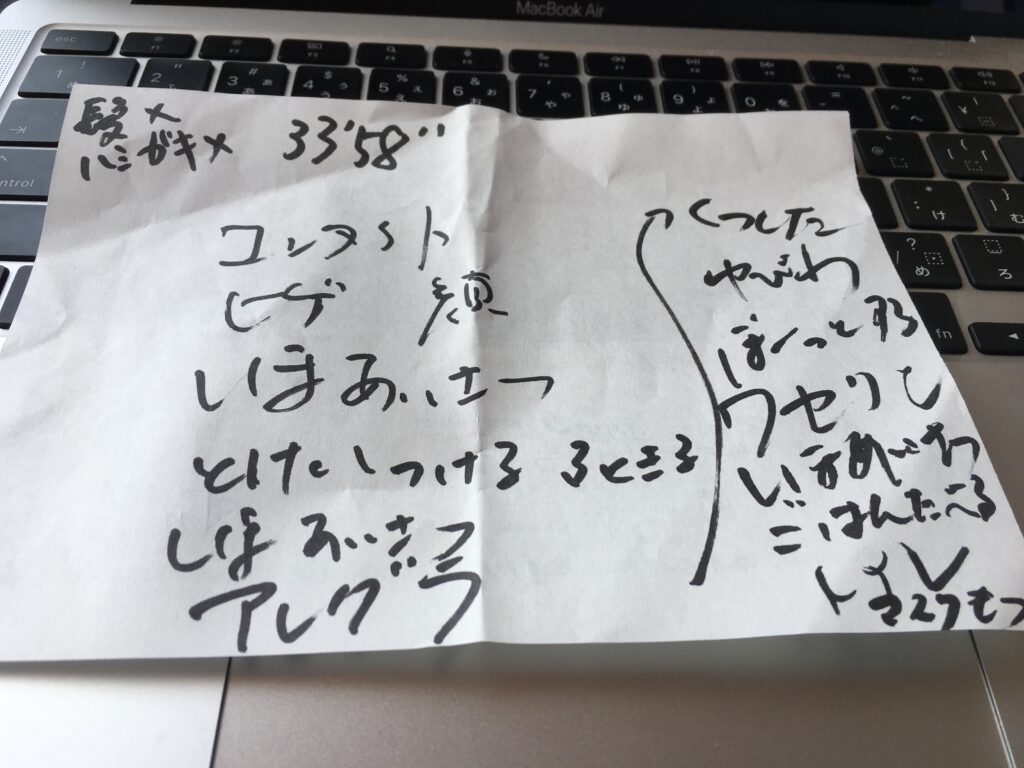 MacBook Air
髪 メ
ハミガキメ 33'58"
コンタクト
ヒゲ 顔
しほあいさつ
とけたいつける るときる
しほあいさつ
アレグラ
くつした
ゆびわ
ぼーっとする
ワセリン
ごはんたべる
トイレ
マスクもつ